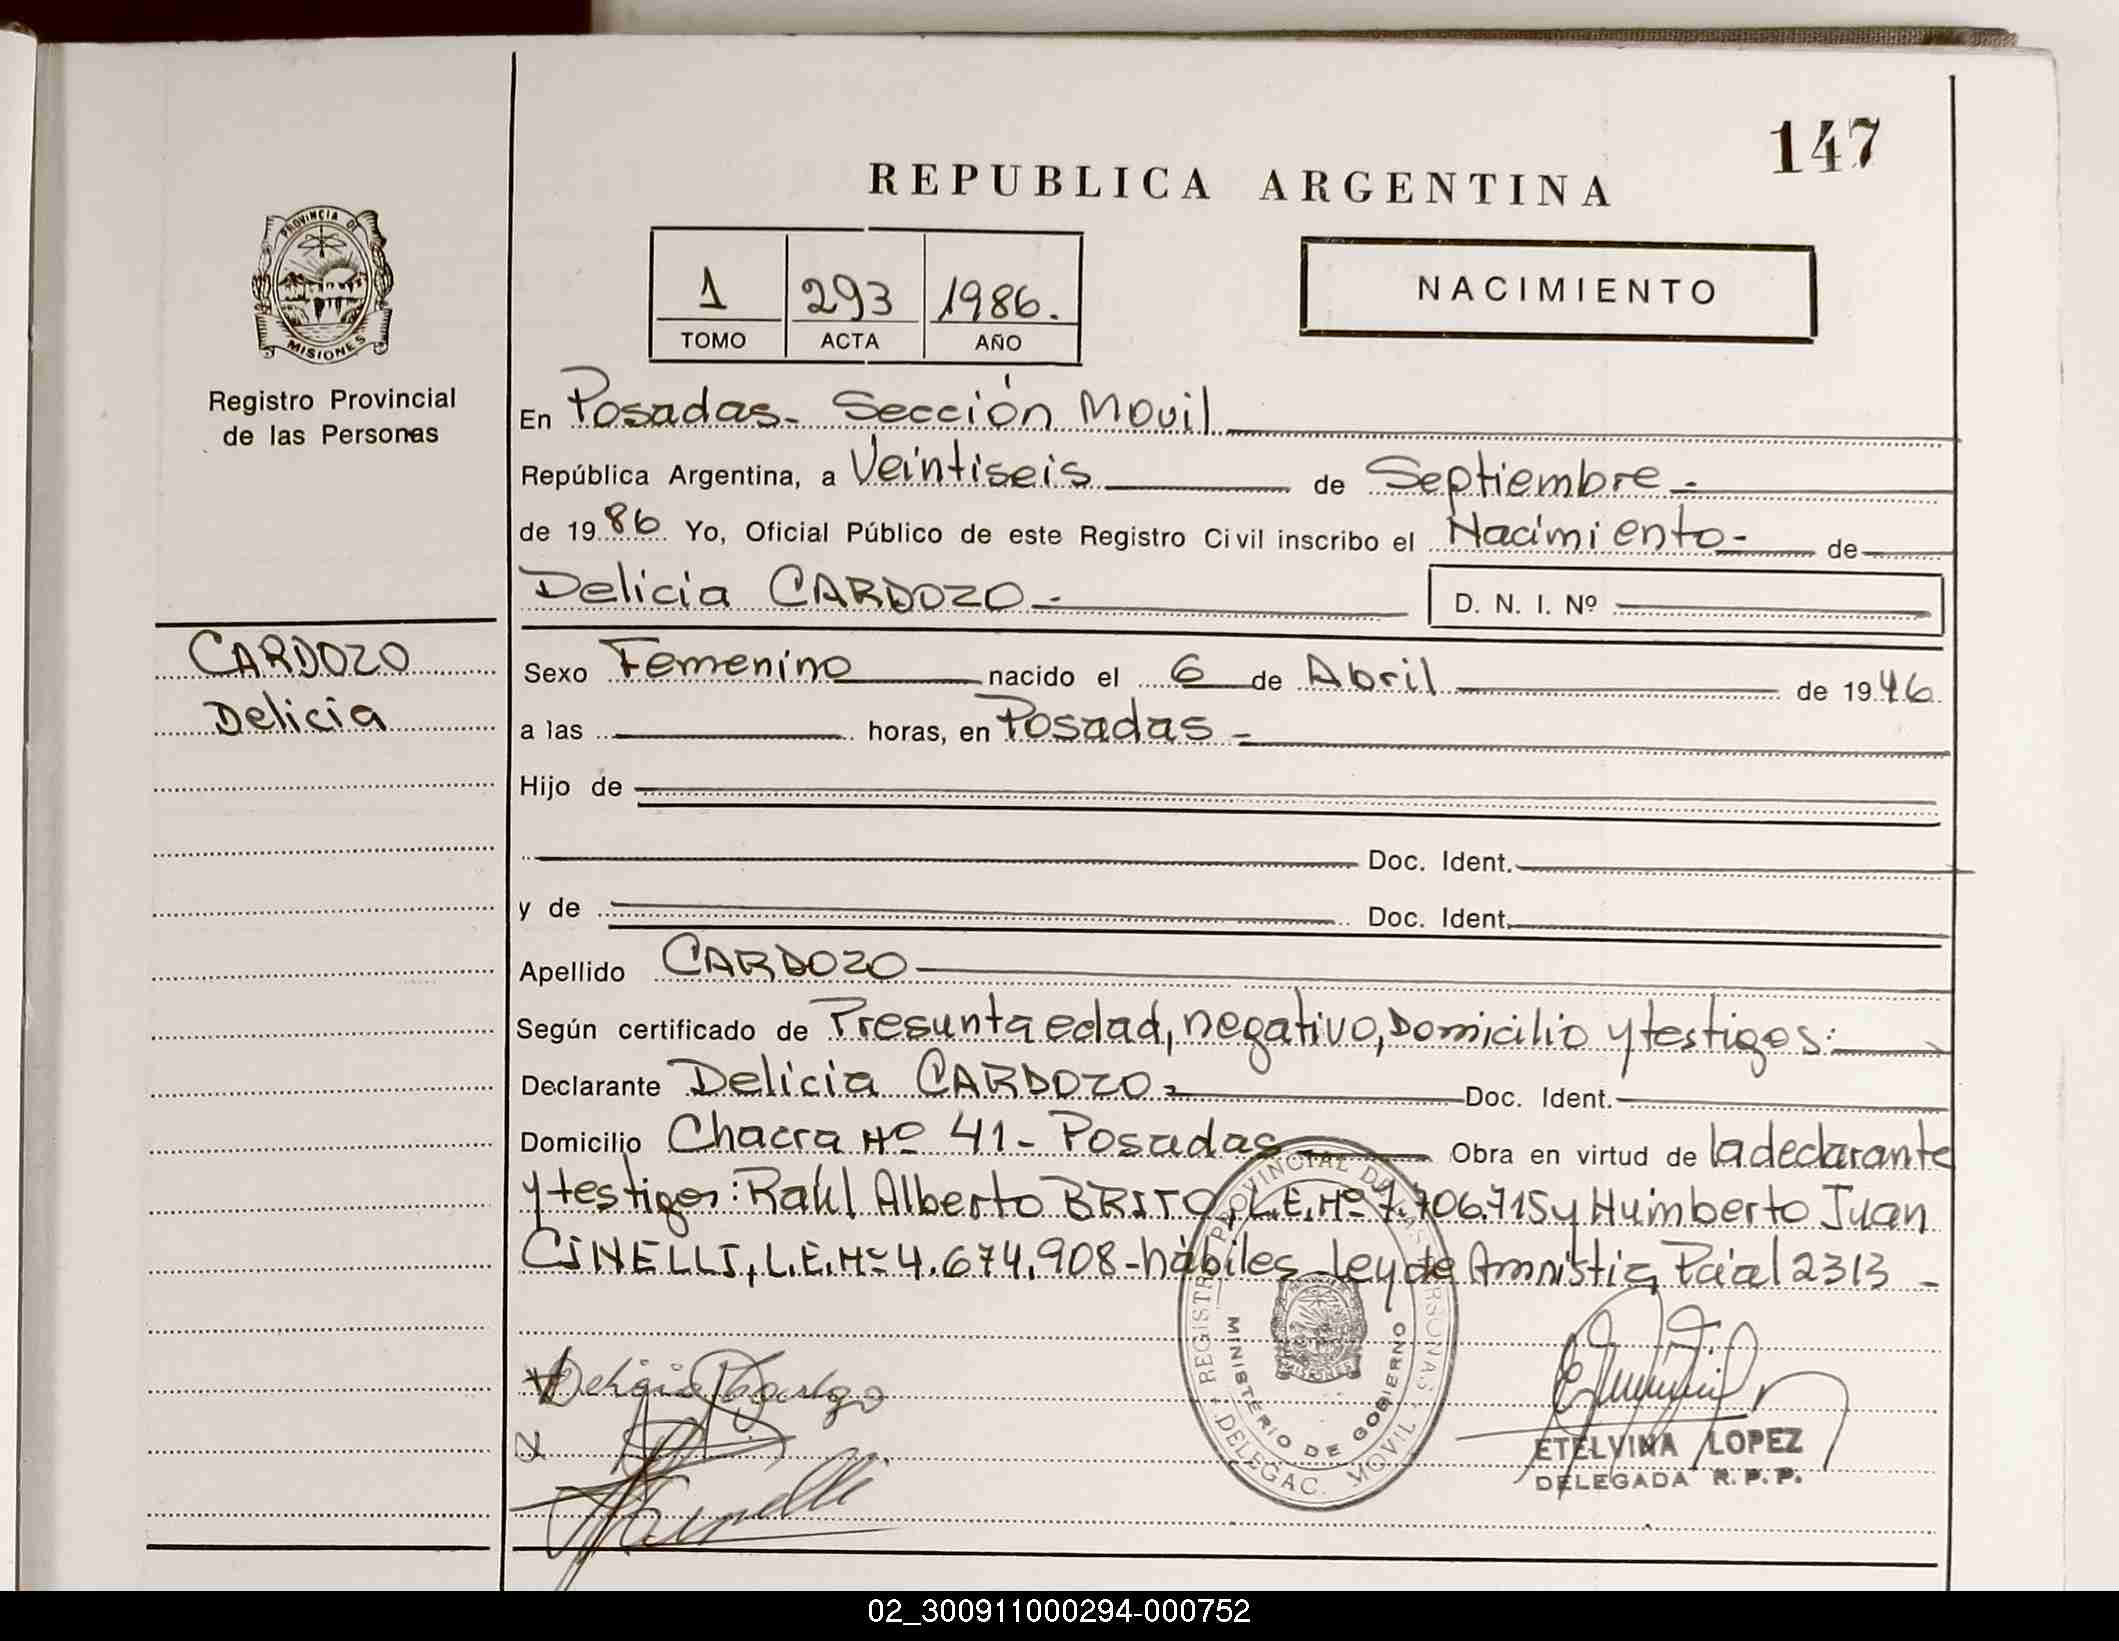 147
REPUBLICA ARGENTINA
PROVINCIA DE
MISIONES
1 293 1986.
TOMO ACTA AÑO
NACIMIENTO
Registro Provincial
de las Personas
En Posadas- Sección Movil
República Argentina, a Veintiseis de Septiembre -
de 1986 Yo, Oficial Público de este Registro Civil inscribo el Nacimiento- de
Delicia CARDOZO -
D. N. I. Nº
CARDOZO
Delicia
Sexo Femenino nacido el 6 de Abril de 1946
a las horas, en Posadas -
Hijo de
Doc. Ident.
y de Doc. Ident.
Apellido CARDOZO
Según certificado de Presunta edad, negativo, Domicilio y testigos:
Declarante Delicia CARDOZO Doc. Ident.
Domicilio Chacra Nº 41 - Posadas Obra en virtud de la declarante
y testigos: Raúl Alberto BRITO, L.E. Nº 7.706.715 y Humberto Juan
CINELLI, L.E. Nº 4.674.908 - hábiles - Ley de Amnistia Pcial 2313 -
REGISTRO PROVINCIAL DE LAS PERSONAS
MINISTERIO DE GOBIERNO
DELEGAC. MOVIL
ETELVINA LOPEZ
DELEGADA R. P. P.
02_300911000294-000752